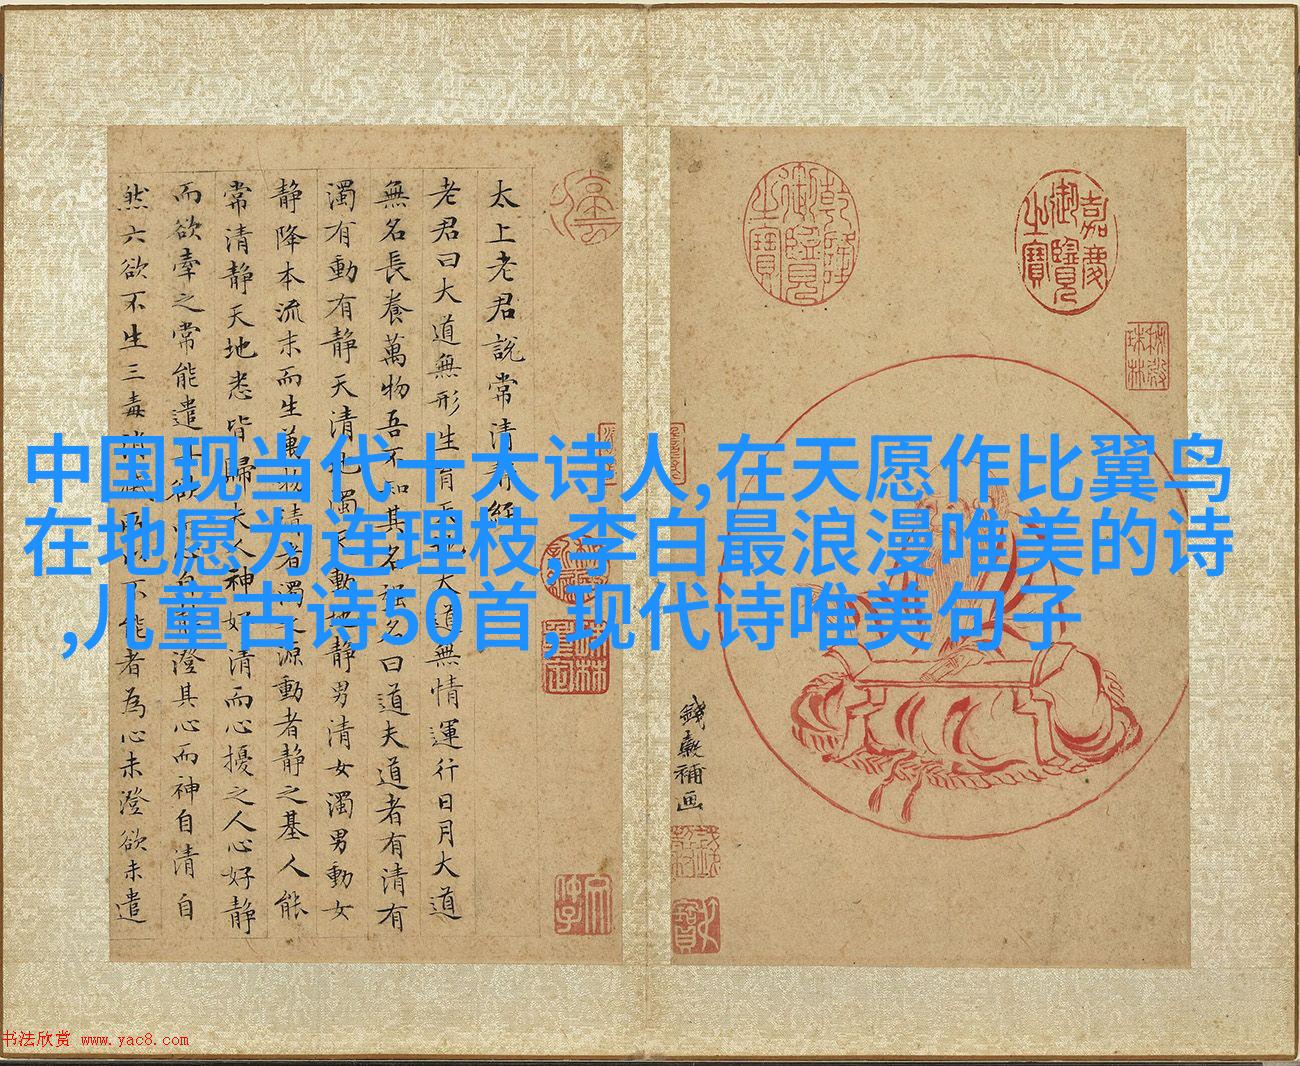 中国现当代十大诗人,在天愿作比翼鸟
在地愿为连理枝,李白最浪漫唯美的诗
,儿童古诗50首,现代诗唯美句子
嘉慶御覽之寶
乾隆御覽之寶
秘殿珠林
錢穀補画
太上老君說常清靜經
老君曰大道無形生育天地大道無情運行日月大道
無名長養萬物吾不知其名強名曰道夫道者有清有
濁有動有静天清地濁天動地静男清女濁男動女
静降本流末而生萬物清者濁之源動者静之基人能
常清静天地悉皆歸夫人神好清而心擾之人心好静
而欲牽之常能遣其欲而心自静澄其心而神自清自
然六欲不生三毒消滅所以不能者為心未澄欲未遣
书法欣赏 www.yac8.com